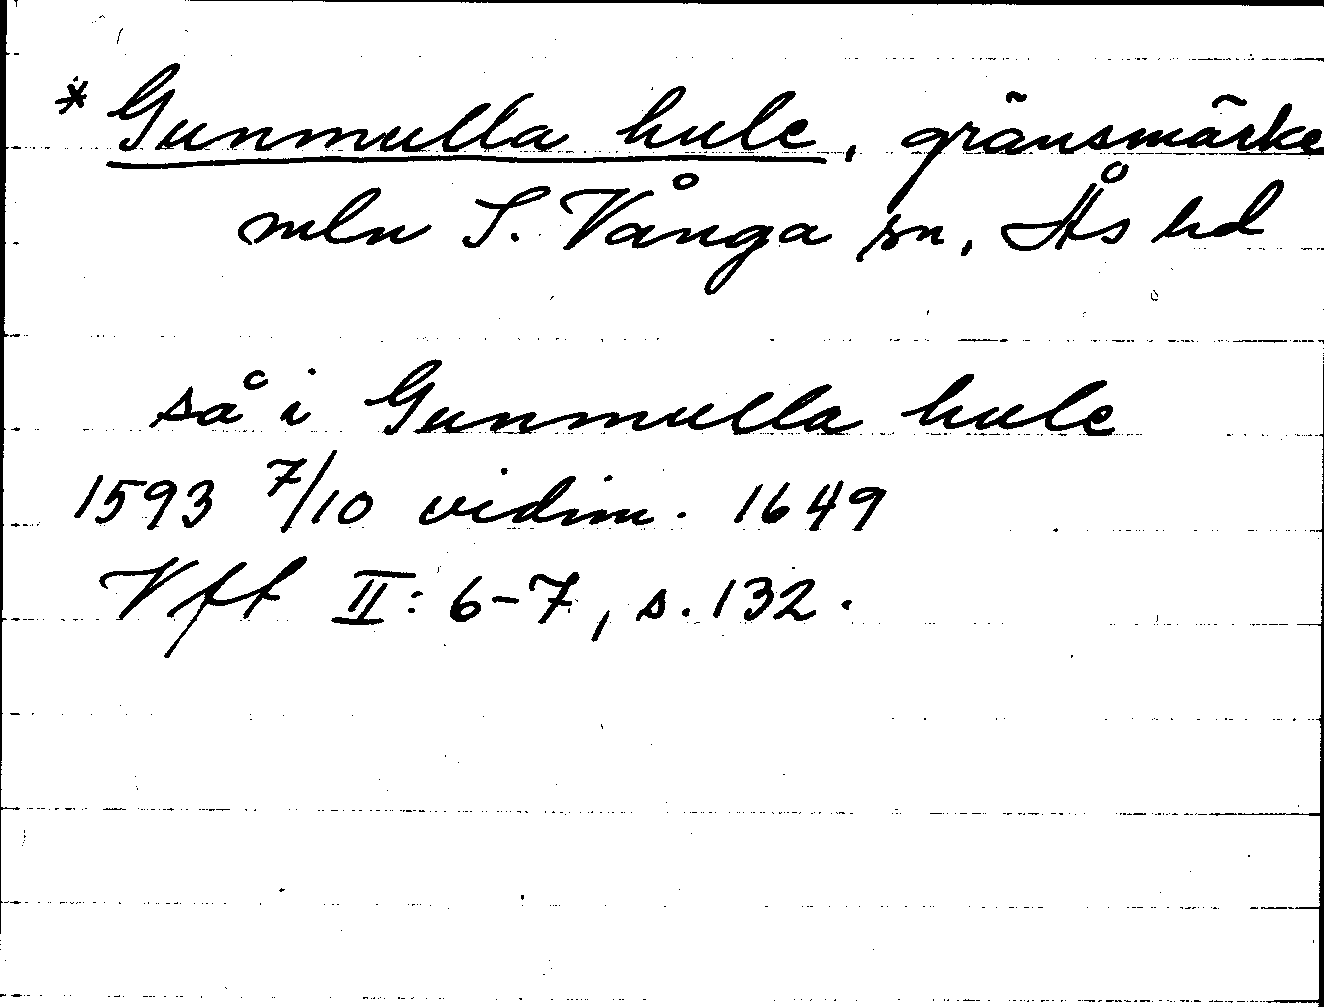 * Gunmulla hule, gränsmärke
mln S. Vånga sn, Ås hd
så i Gunmulla hule
1593 7/10 vidim. 1649
Vft II: 6-7, s. 132.